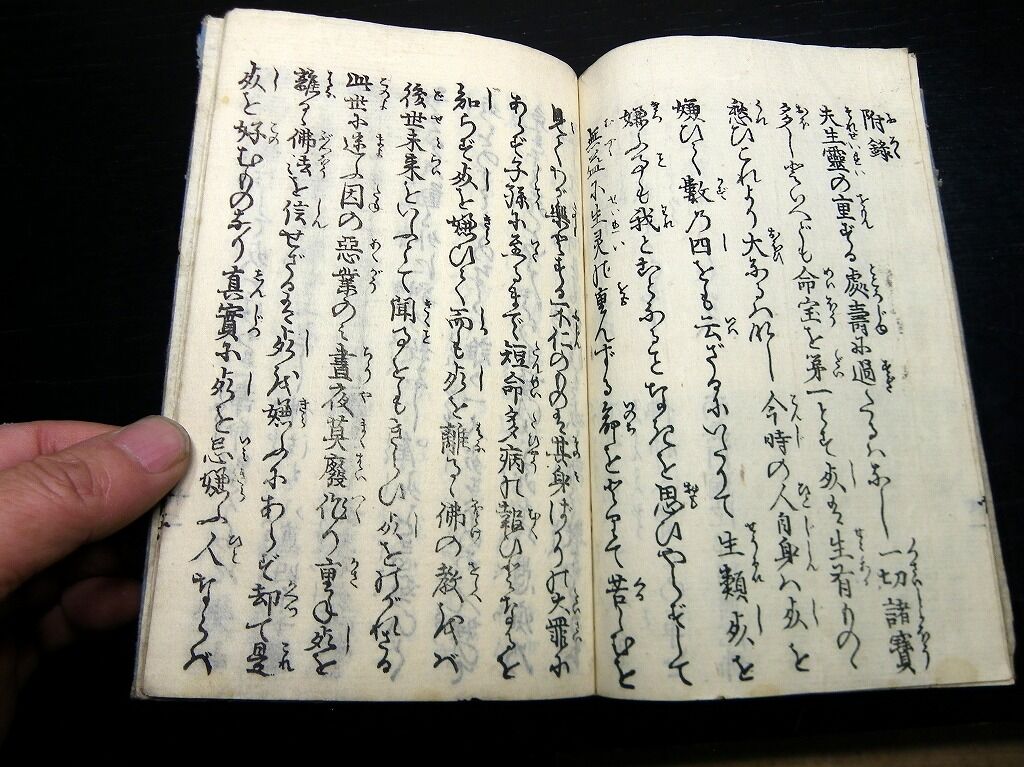 附録
夫生霊の重ずる處壽に過たるはなし一切諸寳
多しといへども命宝を第一とす死は生有ものゝ
愁ひこれより大なるハなし今時の人自身ハ死を
嫌ひて数の四をも云ざるにいたりて生類死を
嫌ふも我とことなることなきを思ひやらずして
無益に生灵の重んずる命をとりて苦しむを
見てわが楽とする不仁のものは其身ばかりの大罪に
あらず子孫に至るまで短命多病の報ひとなるを
知らず死を嫌ひて而も死を離るゝ佛の教をバ
後世未来といふて聞ことをもきらひ死をのがれざる
此世に迷ふ因の悪業のミ昼夜莫廢作り重ね死を
離るゝ佛法を信ぜざるは死を嫌ふにあらず却て是
死を好むものなり真實に死を忌嫌ふ人ならバ